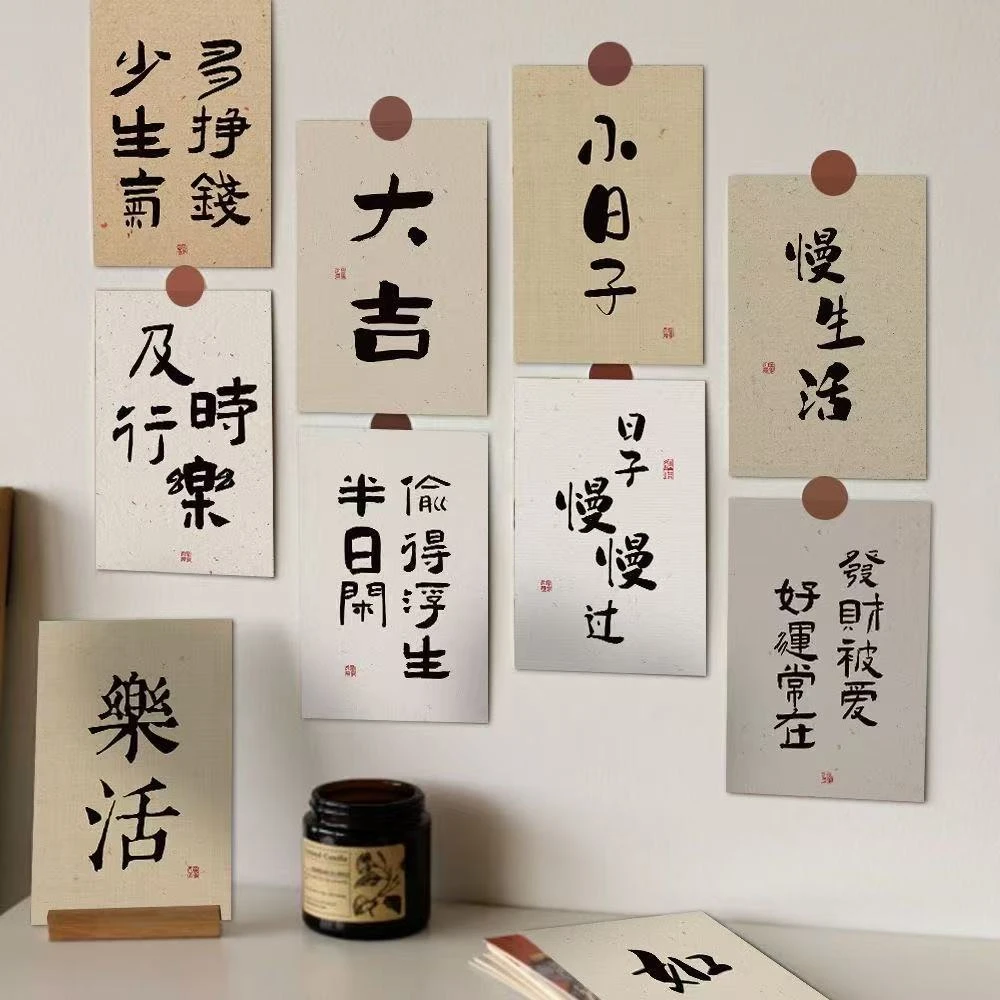 多挣錢
少生氣
大吉
小日子
慢生活
及時
行樂
偷得浮生
半日閑
日子
慢慢
过
發財被爱
好運常在
樂活
如